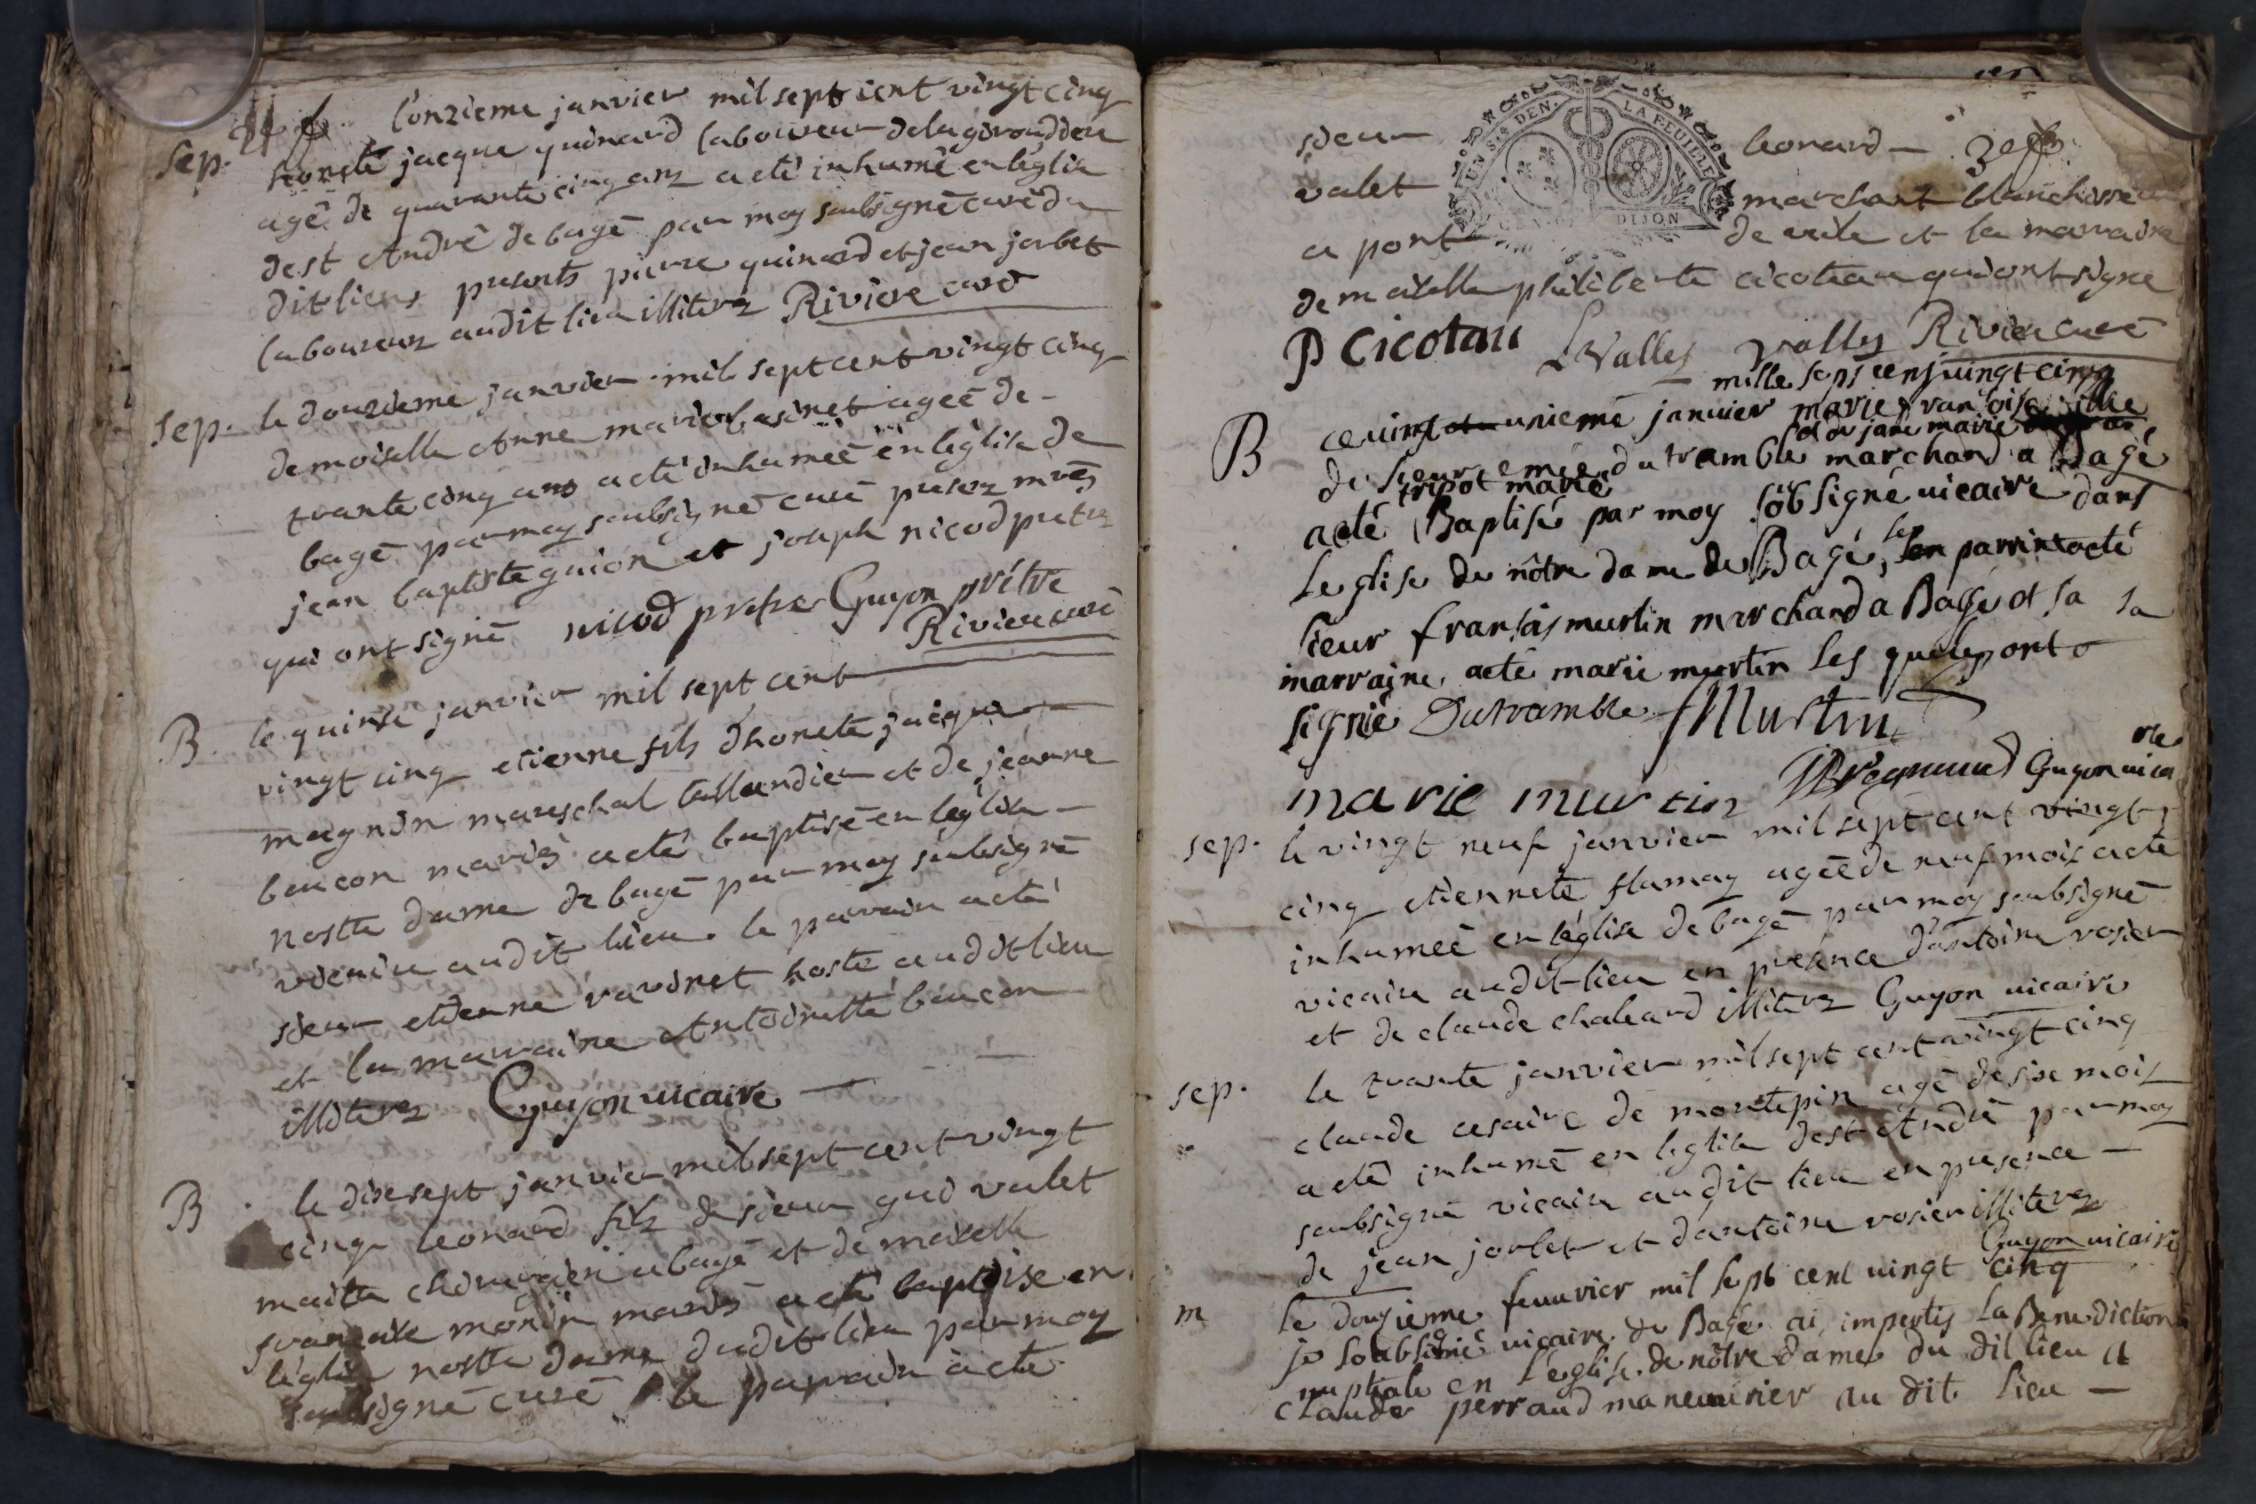 sep. l'onzieme janvier mil sept cent vingt cinq
honeste jacque quinard laboureur
agé de quarante cinq ans a eté inhumé en l'eglise
de st André de bagé par moy soubsigné curé du
dit lieu presents pierre quinard et jean jorlet
laboureurs audit lieu illiterez Riviere curé
sep. le douzieme janvier mil sept cent vingt cinq
demoiselle Anne marie agée de
trante cinq ans a eté inhumeé en l'église de
bagé par moy soubsigné curé
jean baptiste guion et joseph nicod
qui ont signé nicod Guyon prêtre
Riviere curé
B. le quinse janvier mil sept cent
vingt cinq etienne fils d'honete jacque
magnon mareschal taillandier et de jeanne
beucon mariés a eté baptisé en l'église
nostre dame de bagé par moy soubsigné
vicaire audit lieu le parrain a eté
sieur etienne ravinet hoste audit lieu
et la marraine Antoinette beucon
illiterez Guyon vicaire
B le dixsept janvier mil sept cent vingt
cinq leonard fils de sieur valet
maitre chirurgien a bagé et de
francoise monin mariés a eté baptise en
l'église nostre dame dudit lieu par moy
soubsigné curé le parrain a eté
UN Sol DEN. LA FEUILLE
DIJON
sieur leonard
valet marchant blanchisseur
a pont de vile et la marraine
philiberte cicotau qui ont signé
P Cicotau LValles Valles Riviere curé
mille sept cent vingt cinq
B ce vingt unieme janvier marie fille
et de jane marie
de sieur du tramble marchand a Bagé
tripot marié
a eté Baptisé par moy sôbsigné vicaire dans
Leglise de nôtre dame de Bagé, le parrin a eté
sieur fransais murtin marchand a Bagé et sa sa
marraine a eté marie murtin les quels ont
signé Dutramble fMurtin
marie murtin Guyon vicaire
sep. le vingt neuf janvier mil sept cent vingt
cinq etiennete flamay agée de neuf mois a ete
inhumeé en l'église de bagé par moy soubsigné
vicaire audit lieu en presence d'antoine rosier
et de claude chaleard illiterez Guyon vicaire
sep. le trante janvier mil sept cent vingt cinq
claude cesaire de montepin agé de six mois
a eté inhumé en l'eglise de st André par moy
soubsigné vicaire audit lieu en presence
de jean jorlet et d'antoine rosier illiterez
Guyon vicaire
m le douzieme feuvrier mil sept cent vingt cinq
je soubsiné vicaire de Bagé ai impertis la Benediction
nuptiale en L'eglise de nôtre dame du dit lieu a
claude perraud maneuvrier au dit lieu